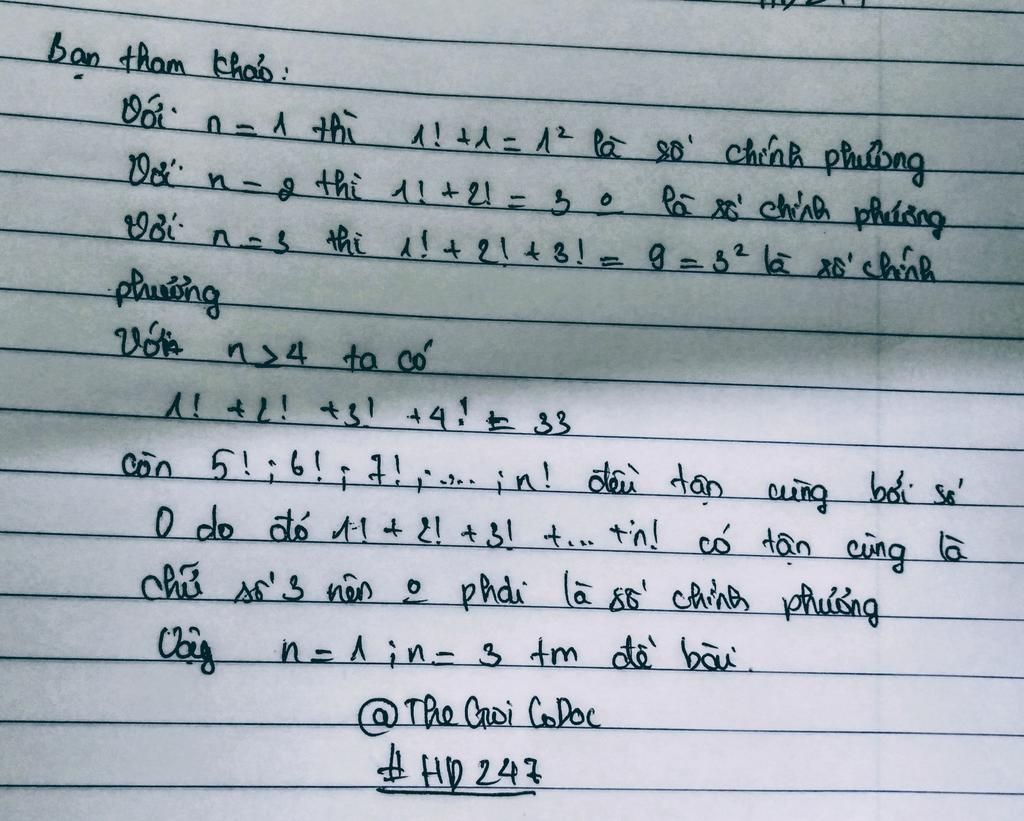 Bạn tham khảo:
Với n = 1 thì 1! + 1 = 1² là số chính phương
Với n = 2 thì 1! + 2! = 3 o là số chính phương
Với n = 3 thì 1! + 2! + 3! = 9 = 3² là số chính
phương
Với n > 4 ta có
1! + 2! + 3! + 4! = 33
còn 5! ; 6! ; 7! ; .... ; n! đều tận cùng bởi số
0 do đó 1! + 2! + 3! + ... + n! có tận cùng là
chữ số 3 nên o phải là số chính phương
Vậy n = 1 ; n = 3 tm đề bài.
@TheGioiCoDoc
# HD 247